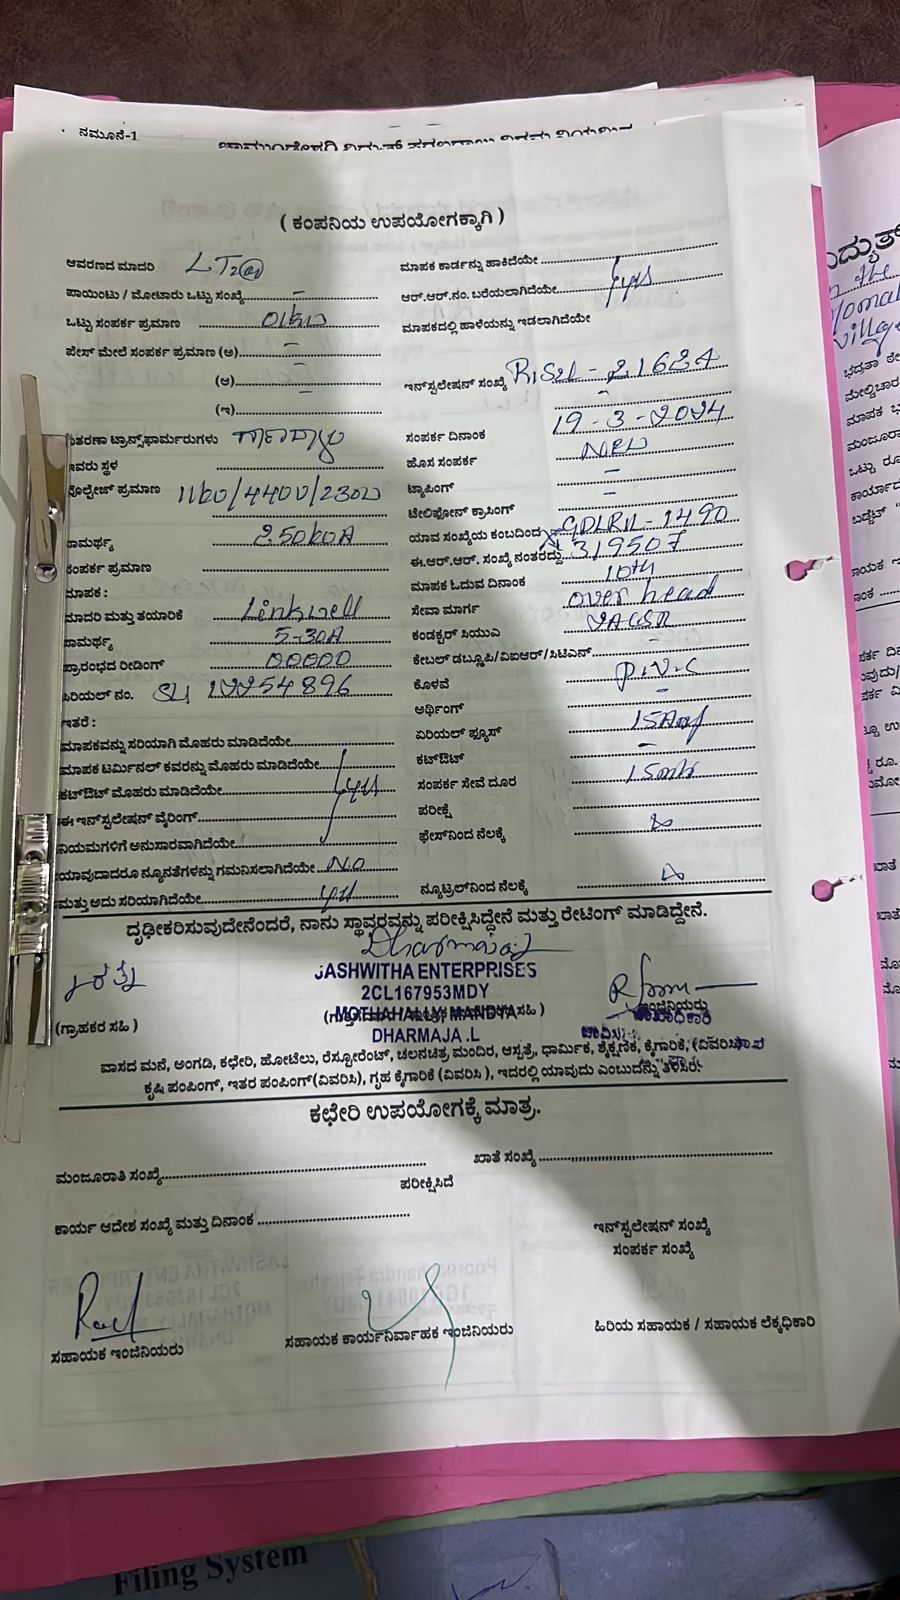 ನಮೂನೆ-1
( ಕಂಪನಿಯ ಉಪಯೋಗಕ್ಕಾಗಿ )
ಆವರಣದ ಮಾದರಿ LT2(a)
ಪಾಯಿಂಟು / ಮೋಟಾರು ಒಟ್ಟು ಸಂಖ್ಯೆ -
ಒಟ್ಟು ಸಂಪರ್ಕ ಪ್ರಮಾಣ 01kw
ಪೇಸ್ ಮೇಲೆ ಸಂಪರ್ಕ ಪ್ರಮಾಣ (ಅ) -
(ಆ) -
(ಇ)
ವಿತರಣಾ ಟ್ರಾನ್ಸ್‌ಫಾರ್ಮರುಗಳು
ಇವರು ಸ್ಥಳ
ವೋಲ್ಟೇಜ್ ಪ್ರಮಾಣ 1100/4400/2300
ಸಾಮರ್ಥ್ಯ 250kVA
ಸಂಪರ್ಕ ಪ್ರಮಾಣ
ಮಾಪಕ :
ಮಾದರಿ ಮತ್ತು ತಯಾರಿಕೆ Linkwell
ಸಾಮರ್ಥ್ಯ 5-30A
ಪ್ರಾರಂಭದ ರೀಡಿಂಗ್ 00000
ಸಿರಿಯಲ್ ನಂ. 12254896
ಇತರೆ :
ಮಾಪಕವನ್ನು ಸರಿಯಾಗಿ ಮೊಹರು ಮಾಡಿದೆಯೇ
ಮಾಪಕ ಟರ್ಮಿನಲ್ ಕವರನ್ನು ಮೊಹರು ಮಾಡಿದೆಯೇ
ಕಟ್‌ಔಟ್ ಮೊಹರು ಮಾಡಿದೆಯೇ yes
ಈ ಇನ್‌ಸ್ಟಲೇಷನ್ ವೈರಿಂಗ್
ನಿಯಮಗಳಿಗೆ ಅನುಸಾರವಾಗಿದೆಯೇ
ಯಾವುದಾದರೂ ನ್ಯೂನತೆಗಳನ್ನು ಗಮನಿಸಲಾಗಿದೆಯೇ NO
ಮತ್ತು ಅದು ಸರಿಯಾಗಿದೆಯೇ yes
ಮಾಪಕ ಕಾರ್ಡನ್ನು ಹಾಕಿದೆಯೇ
ಆರ್.ಆರ್.ನಂ. ಬರೆಯಲಾಗಿದೆಯೇ yes
ಮಾಪಕದಲ್ಲಿ ಹಾಳೆಯನ್ನು ಇಡಲಾಗಿದೆಯೇ
ಇನ್‌ಸ್ಟಲೇಷನ್ ಸಂಖ್ಯೆ - 21624
ಸಂಪರ್ಕ ದಿನಾಂಕ 19-3-2024
ಹೊಸ ಸಂಪರ್ಕ NEW
ಟ್ಯಾಪಿಂಗ್ -
ಟೆಲಿಫೋನ್ ಕ್ರಾಸಿಂಗ್ -
ಯಾವ ಸಂಖ್ಯೆಯ ಕಂಬದಿಂದ GDLR11-1490
ಈ.ಆರ್.ಆರ್. ಸಂಖ್ಯೆ ನಂತರದ್ದು 319507
ಮಾಪಕ ಓದುವ ದಿನಾಂಕ 10th
ಸೇವಾ ಮಾರ್ಗ over head
ಕಂಡಕ್ಟರ್ ಸಿಯುಎ
ಕೇಬಲ್ ಡಬ್ಲ್ಯೂಪಿ/ವಿಐಆರ್/ಸಿಟಿಎನ್ -
ಕೊಳವೆ P.V.C
ಅರ್ಥಿಂಗ್ -
ಏರಿಯಲ್ ಫ್ಯೂಸ್ 15Amp
ಕಟ್‌ಔಟ್ -
ಸಂಪರ್ಕ ಸೇವೆ ದೂರ 15mtr
ಪರೀಕ್ಷೆ
ಫೇಸ್‌ನಿಂದ ನೆಲಕ್ಕೆ
ನ್ಯೂಟ್ರಲ್‌ನಿಂದ ನೆಲಕ್ಕೆ
ದೃಢೀಕರಿಸುವುದೇನೆಂದರೆ, ನಾನು ಸ್ಥಾವರವನ್ನು ಪರೀಕ್ಷಿಸಿದ್ದೇನೆ ಮತ್ತು ರೇಟಿಂಗ್ ಮಾಡಿದ್ದೇನೆ.
JASHWITHA ENTERPRISES
2CL167953MDY
MOTHAHALLY, MANDYA
DHARMAJA .L
(ಗ್ರಾಹಕರ ಸಹಿ)
ಇಂಜಿನಿಯರು
ವಾಸದ ಮನೆ, ಅಂಗಡಿ, ಕಛೇರಿ, ಹೋಟೆಲು, ರೆಸ್ಟೋರೆಂಟ್, ಚಲನಚಿತ್ರ ಮಂದಿರ, ಆಸ್ಪತ್ರೆ, ಧಾರ್ಮಿಕ, ಶೈಕ್ಷಣಿಕ, ಕೈಗಾರಿಕೆ,
ಕೃಷಿ ಪಂಪಿಂಗ್, ಇತರ ಪಂಪಿಂಗ್(ವಿವರಿಸಿ), ಗೃಹ ಕೈಗಾರಿಕೆ (ವಿವರಿಸಿ ), ಇದರಲ್ಲಿ ಯಾವುದು ಎಂಬುದನ್ನು ತಿಳಿಸಿರಿ
ಕಛೇರಿ ಉಪಯೋಗಕ್ಕೆ ಮಾತ್ರ.
ಮಂಜೂರಾತಿ ಸಂಖ್ಯೆ ಖಾತೆ ಸಂಖ್ಯೆ
ಪರೀಕ್ಷಿಸಿದೆ
ಕಾರ್ಯ ಆದೇಶ ಸಂಖ್ಯೆ ಮತ್ತು ದಿನಾಂಕ
ಇನ್‌ಸ್ಟಲೇಷನ್ ಸಂಖ್ಯೆ
ಸಂಪರ್ಕ ಸಂಖ್ಯೆ
ಸಹಾಯಕ ಇಂಜಿನಿಯರು
ಸಹಾಯಕ ಕಾರ್ಯನಿರ್ವಾಹಕ ಇಂಜಿನಿಯರು
ಹಿರಿಯ ಸಹಾಯಕ / ಸಹಾಯಕ ಲೆಕ್ಕಧಿಕಾರಿ
Filing System